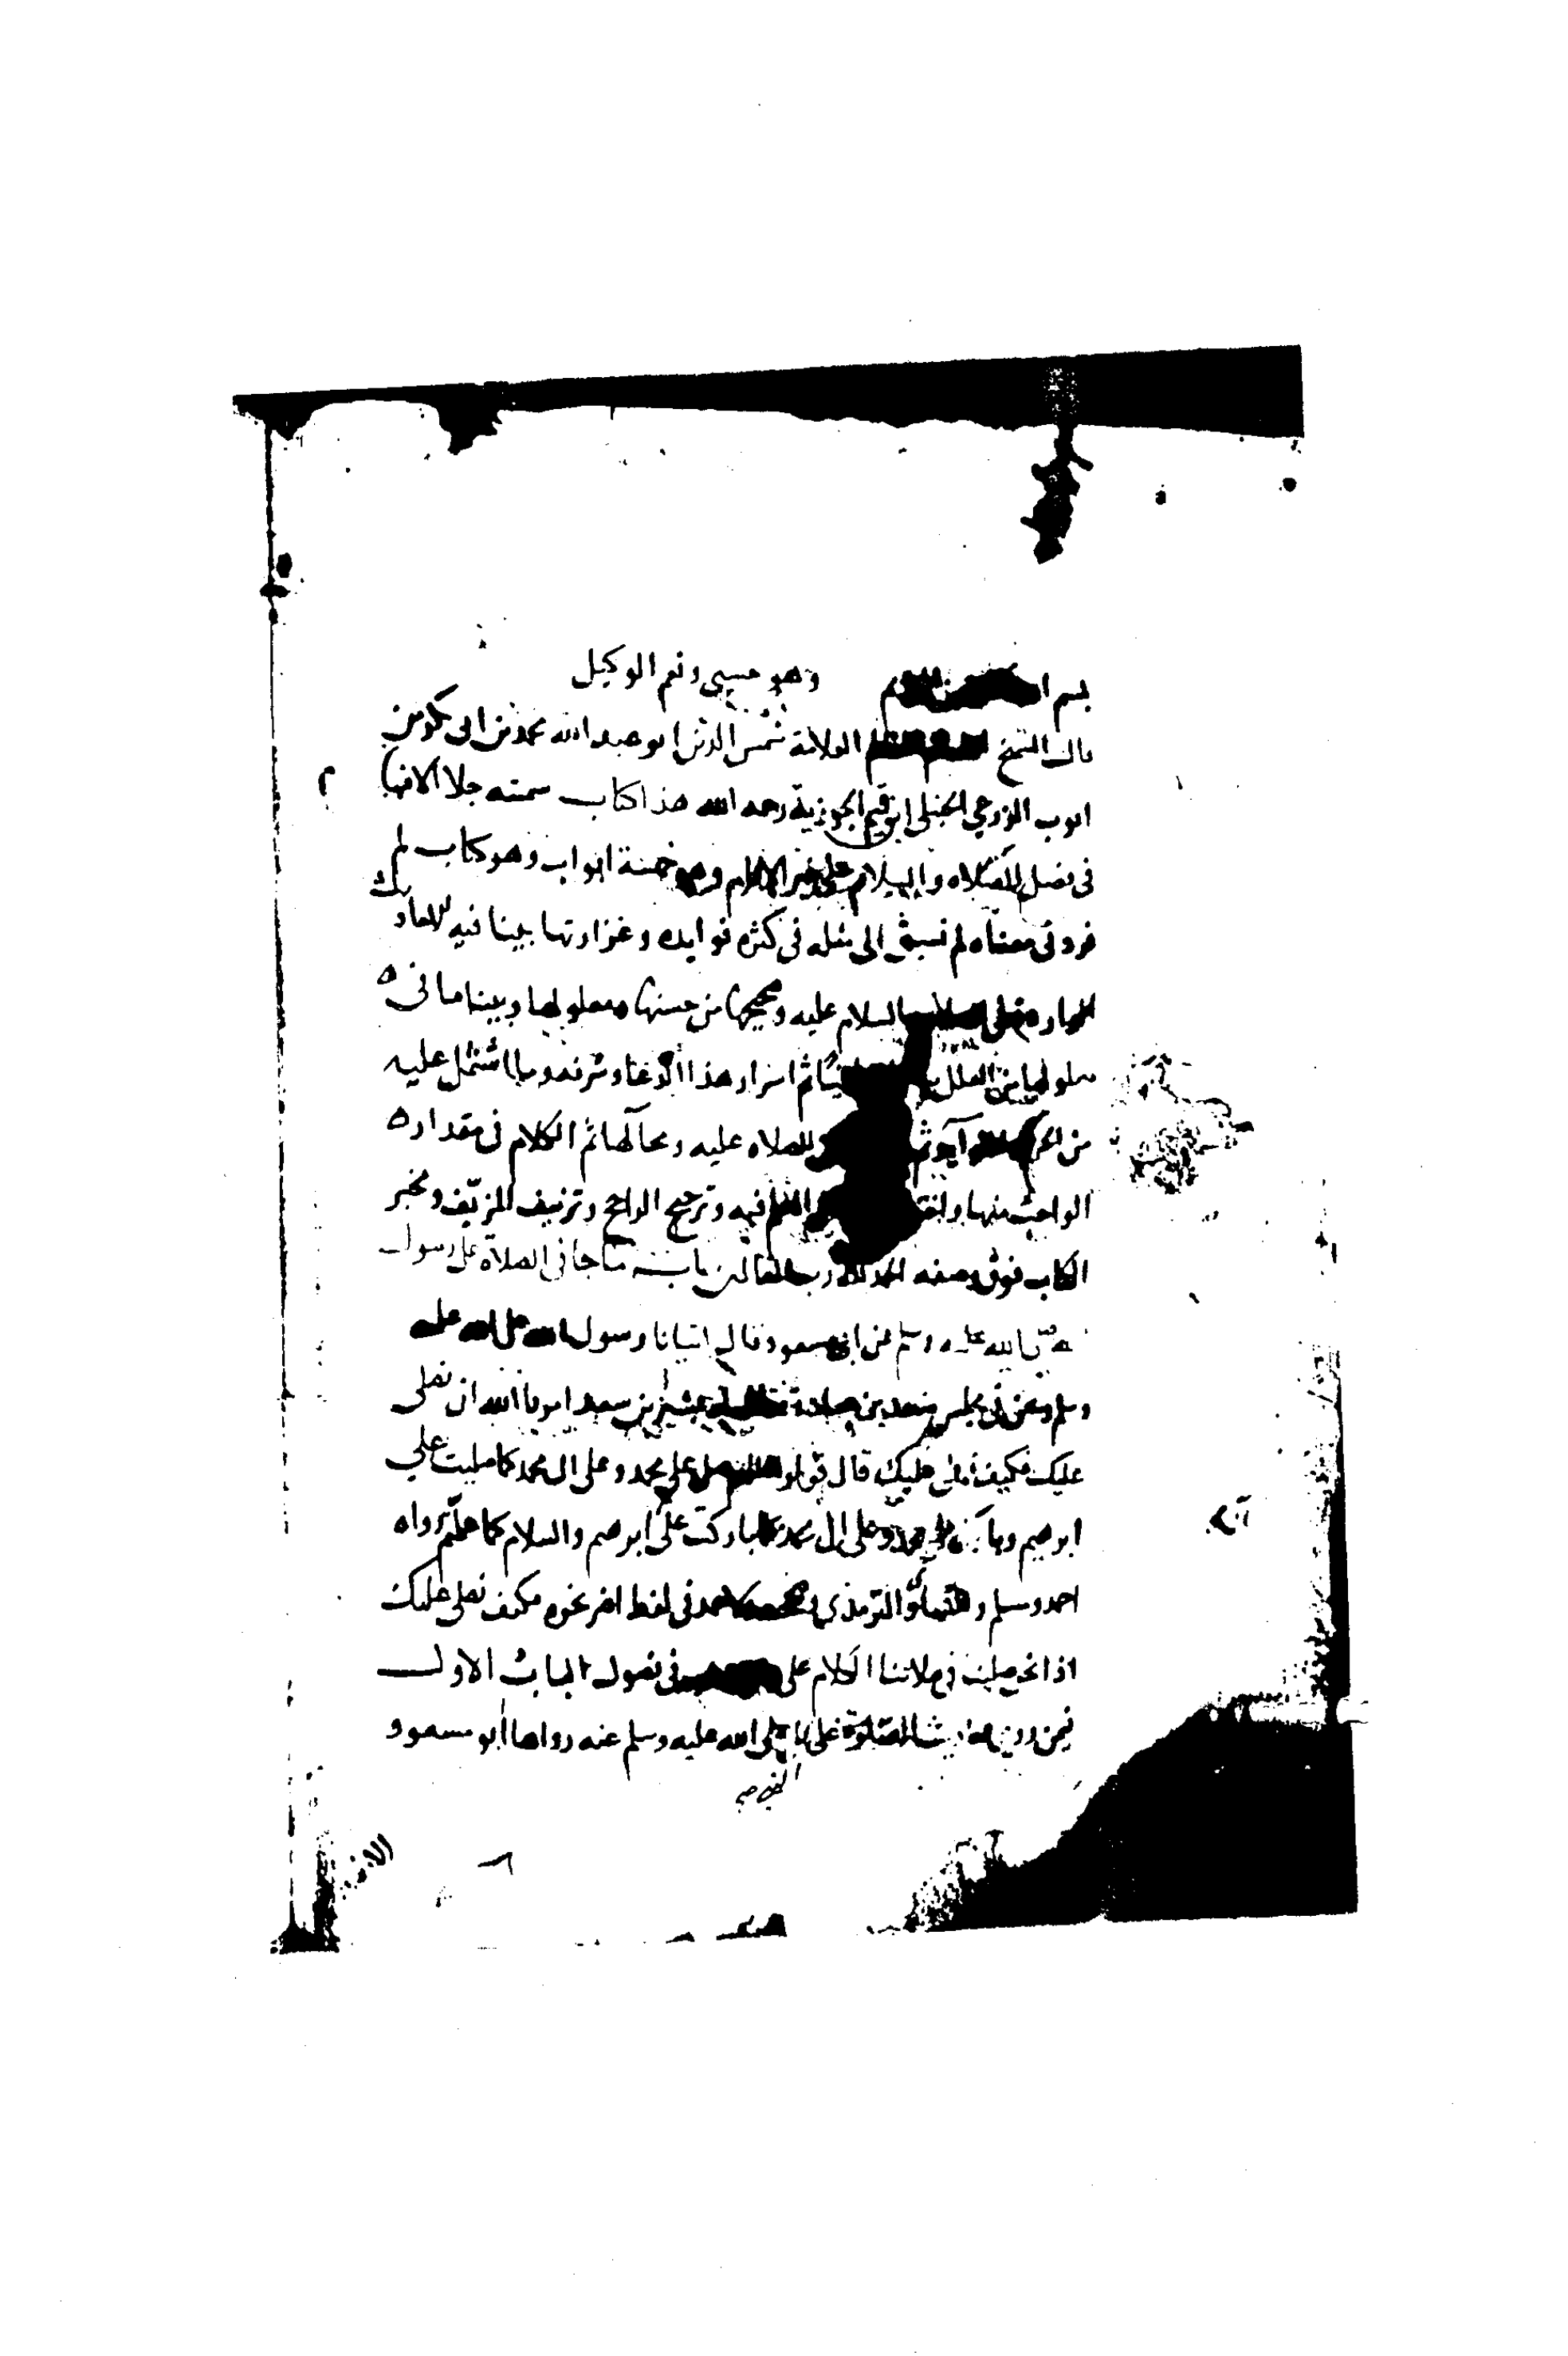 بسم وهو حسبي ونعم الوكيل
قال الشيخ العلامة شمس الدين ابو عبد الله محمد بن ابى بكر بن
ايوب الزرعي الحنبلي ابن قيم الجوزية رحمه الله هذا كتاب سميته جلا الافهام
فى فضل الصلاه والسلام على خير الانام وهو خمسة ابواب وهو كتاب لم
فرد فى معناه لم نسبق الى مثله فى كثره فوايده وغزارتها بينا فيه
السلام عليه وصحيحها من حسنها ومعلولها وبينا ما فى
معلولها من العلل ثم اسرار هذا الدعا وشرفه وما اشتمل عليه
من الصلاه عليه ومحالها ثم الكلام فى مقداره
الواجب منها اهل العلم فيه وترجيح الراجح وتزييف المزيف ومخبر
الكتاب فوق وصفه الحمد لله رب العالمين باب ما جا فى الصلاة على رسول
صلى الله عليه وسلم عن ابى مسعود قال اتانا رسول الله صلى الله عليه
وسلم ونحن فى مجلس سعد بن عبادة بشير بن سعد امرنا الله ان نصلى
عليك فكيف نصلى عليك قال قولوا اللهم صل على محمد وعلى ال محمد كما صليت على
ابرهيم وبارك على محمد وعلى ال محمد كما باركت على ابرهيم والسلام كما علمتم رواه
احمد ومسلم والترمذى وصححه ولاحمد فى لفظ اخر نحوه فكيف نصلى عليك
اذا نحن صلينا فى صلاتنا الكلام على فى فصول الباب الاول
فيمن روى الصلوة على النبى صلى الله عليه وسلم عنه رواها ابو مسعود